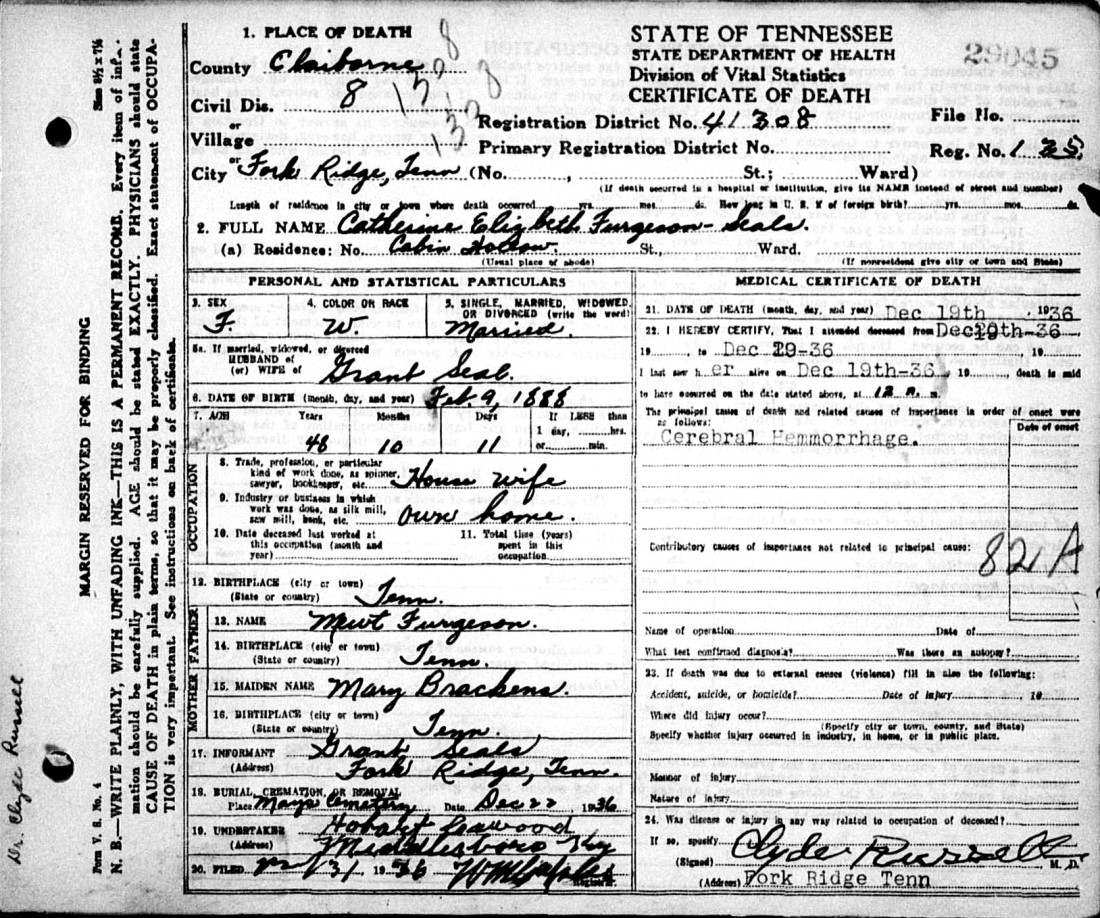 1. PLACE OF DEATH
County Claiborne
Civil Dis. 8
or
Village
or
City Fork Ridge, Tenn (No. , St.; Ward)
STATE OF TENNESSEE
STATE DEPARTMENT OF HEALTH
Division of Vital Statistics
CERTIFICATE OF DEATH
29045
Registration District No. 41308 File No.
Primary Registration District No. Reg. No. 125
(If death occurred in a hospital or institution, give its NAME instead of street and number)
Length of residence in city or town where death occurred yrs. mos. ds. How long in U. S. if of foreign birth? yrs. mos. ds.
2. FULL NAME Catherine Elizbeth Furgeson-Seals.
(a) Residence: No. Cabin Hollow. St., Ward.
(Usual place of abode) (If nonresident give city or town and State)
PERSONAL AND STATISTICAL PARTICULARS
3. SEX F.
4. COLOR OR RACE W.
5. SINGLE, MARRIED, WIDOWED, OR DIVORCED (write the word) Married.
5a. If married, widowed, or divorced
HUSBAND of
(or) WIFE of Grant Seal.
6. DATE OF BIRTH (month, day, and year) Feb. 9, 1888
7. AGE Years 48 Months 10 Days 11 If LESS than 1 day, hrs. or min.
OCCUPATION
8. Trade, profession, or particular kind of work done, as spinner, sawyer, bookkeeper, etc. House wife
9. Industry or business in which work was done, as silk mill, saw mill, bank, etc. own home.
10. Date deceased last worked at this occupation (month and year)
11. Total time (years) spent in this occupation
12. BIRTHPLACE (city or town)
(State or country) Tenn.
FATHER
13. NAME Mewt Furgeson.
14. BIRTHPLACE (city or town)
(State or country) Tenn.
MOTHER
15. MAIDEN NAME Mary Brackens.
16. BIRTHPLACE (city or town)
(State or country) Tenn.
17. INFORMANT Grant Seals
(Address) Fork Ridge, Tenn.
18. BURIAL, CREMATION, OR REMOVAL
Place Mays Cemetery Date Dec 22 1936
19. UNDERTAKER Hobart
(Address) Middlesboro Ky
20. FILED 12/31 1936 Registrar.
MEDICAL CERTIFICATE OF DEATH
21. DATE OF DEATH (month, day, and year) Dec 19th , 1936
22. I HEREBY CERTIFY, That I attended deceased from Dec 19th-36
19 , to Dec 19-36 19
I last saw her alive on Dec 19th-36 , 19 , death is said
to have occurred on the date stated above, at 12 m.
The principal cause of death and related causes of importance in order of onset were as follows:
Date of onset
Cerebral Hemmorrhage.
Contributory causes of importance not related to principal cause:
82A
Name of operation Date of
What test confirmed diagnosis? Was there an autopsy?
23. If death was due to external causes (violence) fill in also the following:
Accident, suicide, or homicide? Date of injury 19
Where did injury occur?
(Specify city or town, county, and State)
Specify whether injury occurred in industry, in home, or in public place.
Manner of injury
Nature of injury
24. Was disease or injury in any way related to occupation of deceased?
If so, specify
(Signed) Clyde Russell M. D.
(Address) Fork Ridge Tenn
MARGIN RESERVED FOR BINDING
Form V. S. No. 4
Size 8½ x 7½
N. B.—WRITE PLAINLY, WITH UNFADING INK—THIS IS A PERMANENT RECORD. Every item of infor-
mation should be carefully supplied. AGE should be stated EXACTLY. PHYSICIANS should state
CAUSE OF DEATH in plain terms, so that it may be properly classified. Exact statement of OCCUPA-
TION is very important. See instructions on back of certificate.
Dr. Clyde Russell